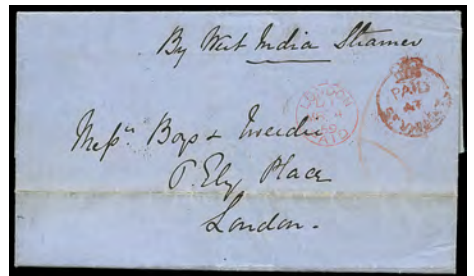 By West India Steamer
PAID
LONDON
PAID
Messrs Boys & Tweedie
Ely Place
London.